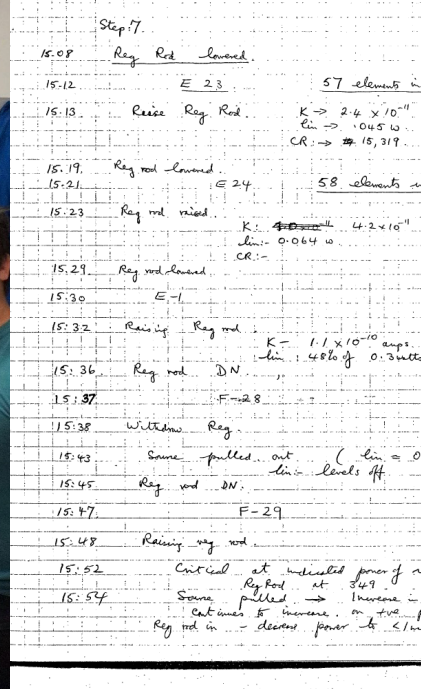 Step: 7.
15.08 Reg Rod lowered.
15.12 E 23 57 elements in
15.13 Raise Reg Rod. K → 2.4 x 10⁻¹¹
lin → .045 w
CR: → 15,319.
15.19. Reg rod lowered.
15.21. E 24 58 elements
15.23 Reg rod raised.
K: 4.2 x 10⁻¹¹
lin:- 0.064 w
CR:-
15.29 Reg rod lowered
15.30 E-1
15:32 Raising Reg rod.
K - 1.1 x 10⁻¹⁰ amps.
lin: 48% of 0.3 watts
15:36. Reg rod DN.
15:37 F-28
15:38 Withdraw Reg.
15:43 Source pulled out ( lin = 0
lin:- levels off
15:45 Reg rod DN.
15:47. F-29
15:48 Raising reg rod.
15:52 Critical at indicated power of
Reg Rod at 349.
15:54 Source pulled → Increase in
Continues to increase. on +ve
Reg rod in - decrease power to < 1